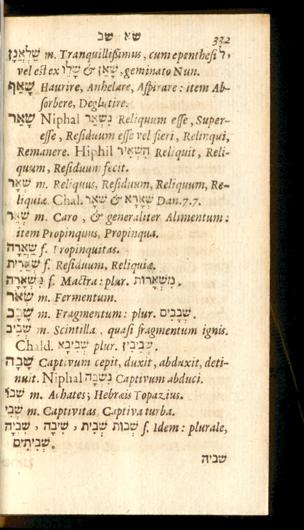 שא שב 332
שַׁלְאֲנָן m. Tranquillissimus, cum epenthesi ל,
vel est ex שָׁאַן & שָׁלֵו, geminato Nun.
שָׁאַף Haurire, Anhelare, Aspirare : item Ab-
sorbere, Deglutire.
שָׁאַר Niphal נִשְׁאַר Reliquum esse, Super-
esse, Residuum esse vel fieri, Relinqui,
Remanere. Hiphil הִשְׁאִיר Reliquit, Reli-
quum, Residuum fecit.
שְׁאָר m. Reliquus, Residuum, Reliquum, Re-
liquiæ. Chal. שְׁאָר & שְׁאָרָא Dan. 7.7.
שְׁאֵר m. Caro, & generaliter Alimentum :
item Propinquus, Propinqua.
שַׁאֲרָה f. Propinquitas.
שְׁאֵרִית f. Residuum, Reliquiæ.
מִשְׁאֶרֶת f. Mactra : plur. מִשְׁאָרוֹת.
שְׂאֹר m. Fermentum.
שָׁבָב m. Fragmentum : plur. שְׁבָבִים.
שָׁבִיב m. Scintilla, quasi fragmentum ignis.
Chald. שְׁבִיבָא plur. שְׁבִיבִין.
שָׁבָה Captivum cepit, duxit, abduxit, deti-
nuit. Niphal נִשְׁבָּה Captivum abduci.
שְׁבוֹ m. Achates, Hebræis Topazius.
שְׁבִי m. Captivitas, Captiva turba.
שְׁבוּת שְׁבִית, שִׁיבָה, שִׁבְיָה f. Idem : plurale,
שְׁבִיתִים.
שביה